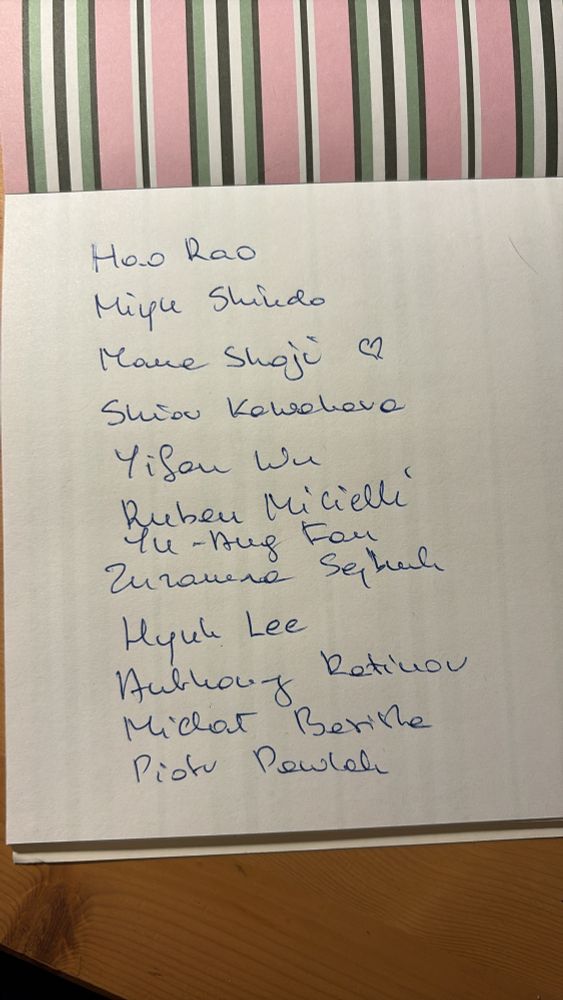 Hao Rao
Miyu Shindo
Mane Shoji ♡
Shiori Kawahara
Yifan Wu
Ruben Micielli
Yu-Ang Fan
Zuzanna Sejbuk
Hyuk Lee
Anthony Ratinov
Michał Basista
Piotr Pawlak